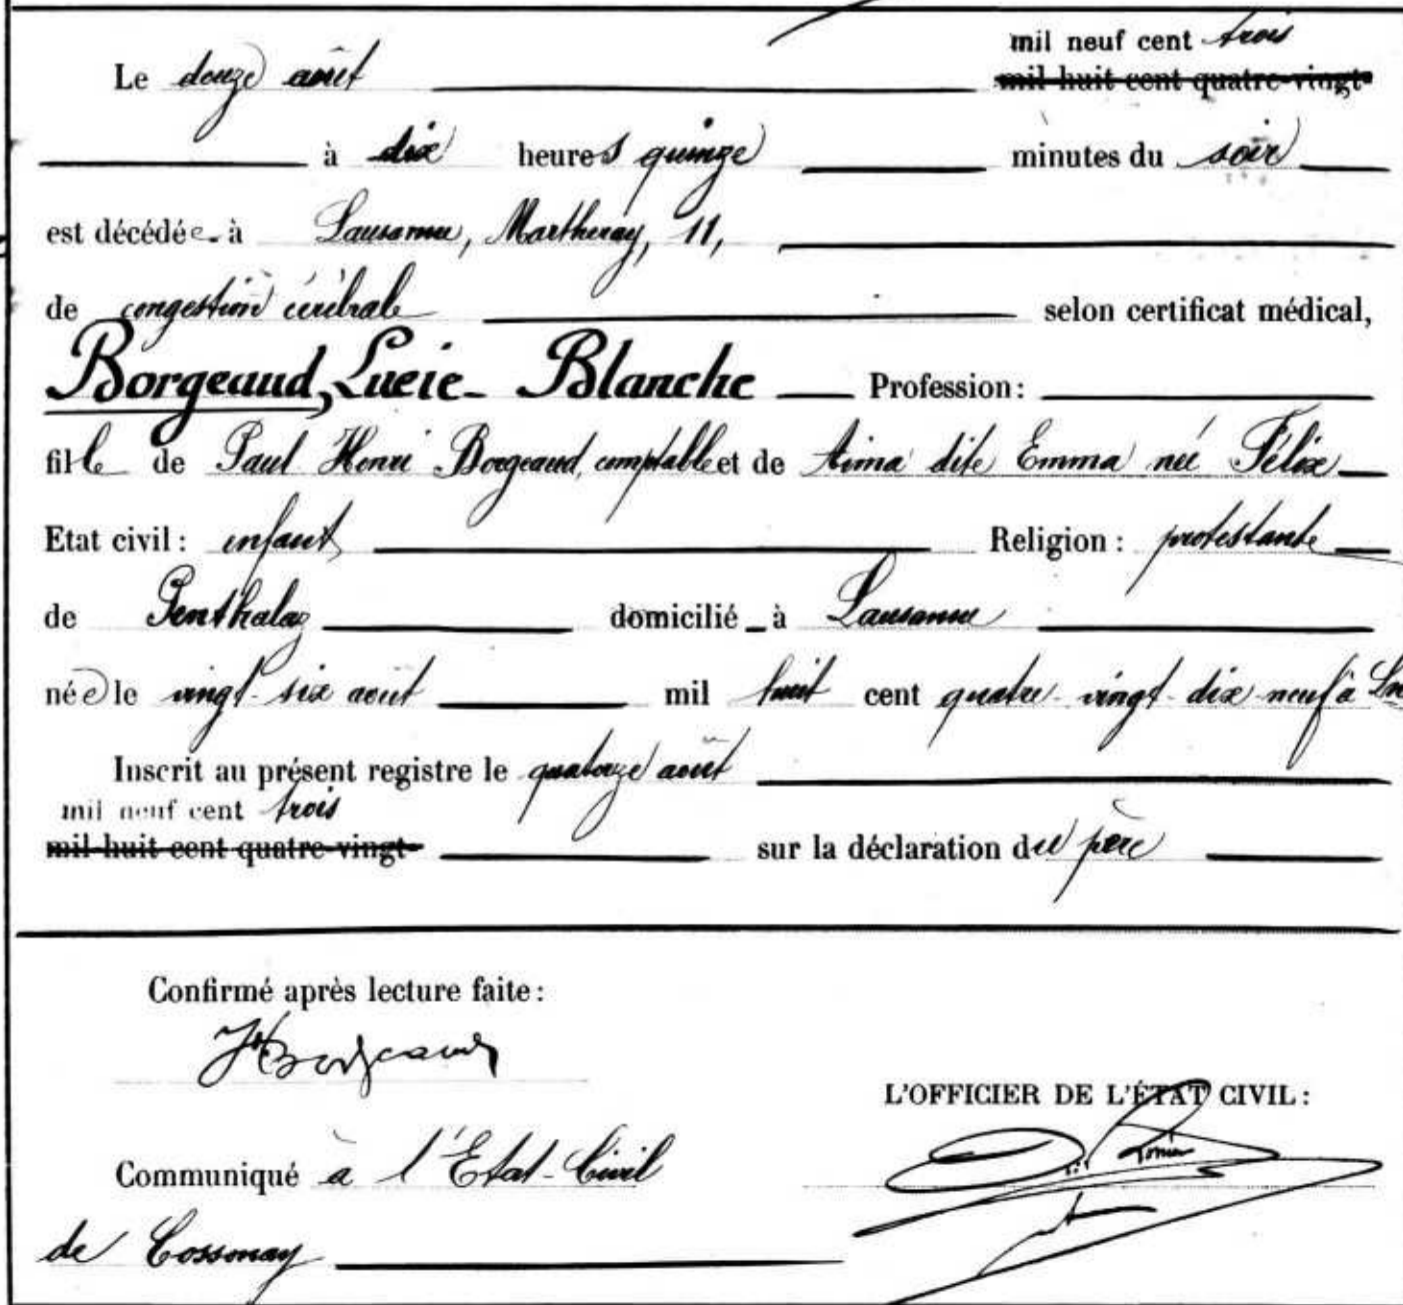 mil neuf cent trois
Le douze août mil huit cent quatre-vingt
à dix heures quinze minutes du soir
est décédée à Lausanne, Martheray, 11,
de congestion cérébrale selon certificat médical,
Borgeaud, Lucie-Blanche Profession:
fille de Paul Henri Borgeaud, comptable et de Aima dite Emma née Félix
Etat civil: enfant Religion: protestante
de Penthalaz domicilié à Lausanne
née le vingt-six août mil huit cent quatre-vingt-dix-neuf à
Inscrit au présent registre le quatorze août
mil neuf cent trois
mil huit cent quatre-vingt- sur la déclaration du père
Confirmé après lecture faite:
Borgeaud
L'OFFICIER DE L'ÉTAT CIVIL:
Communiqué à l'Etat-Civil
de Cossonay